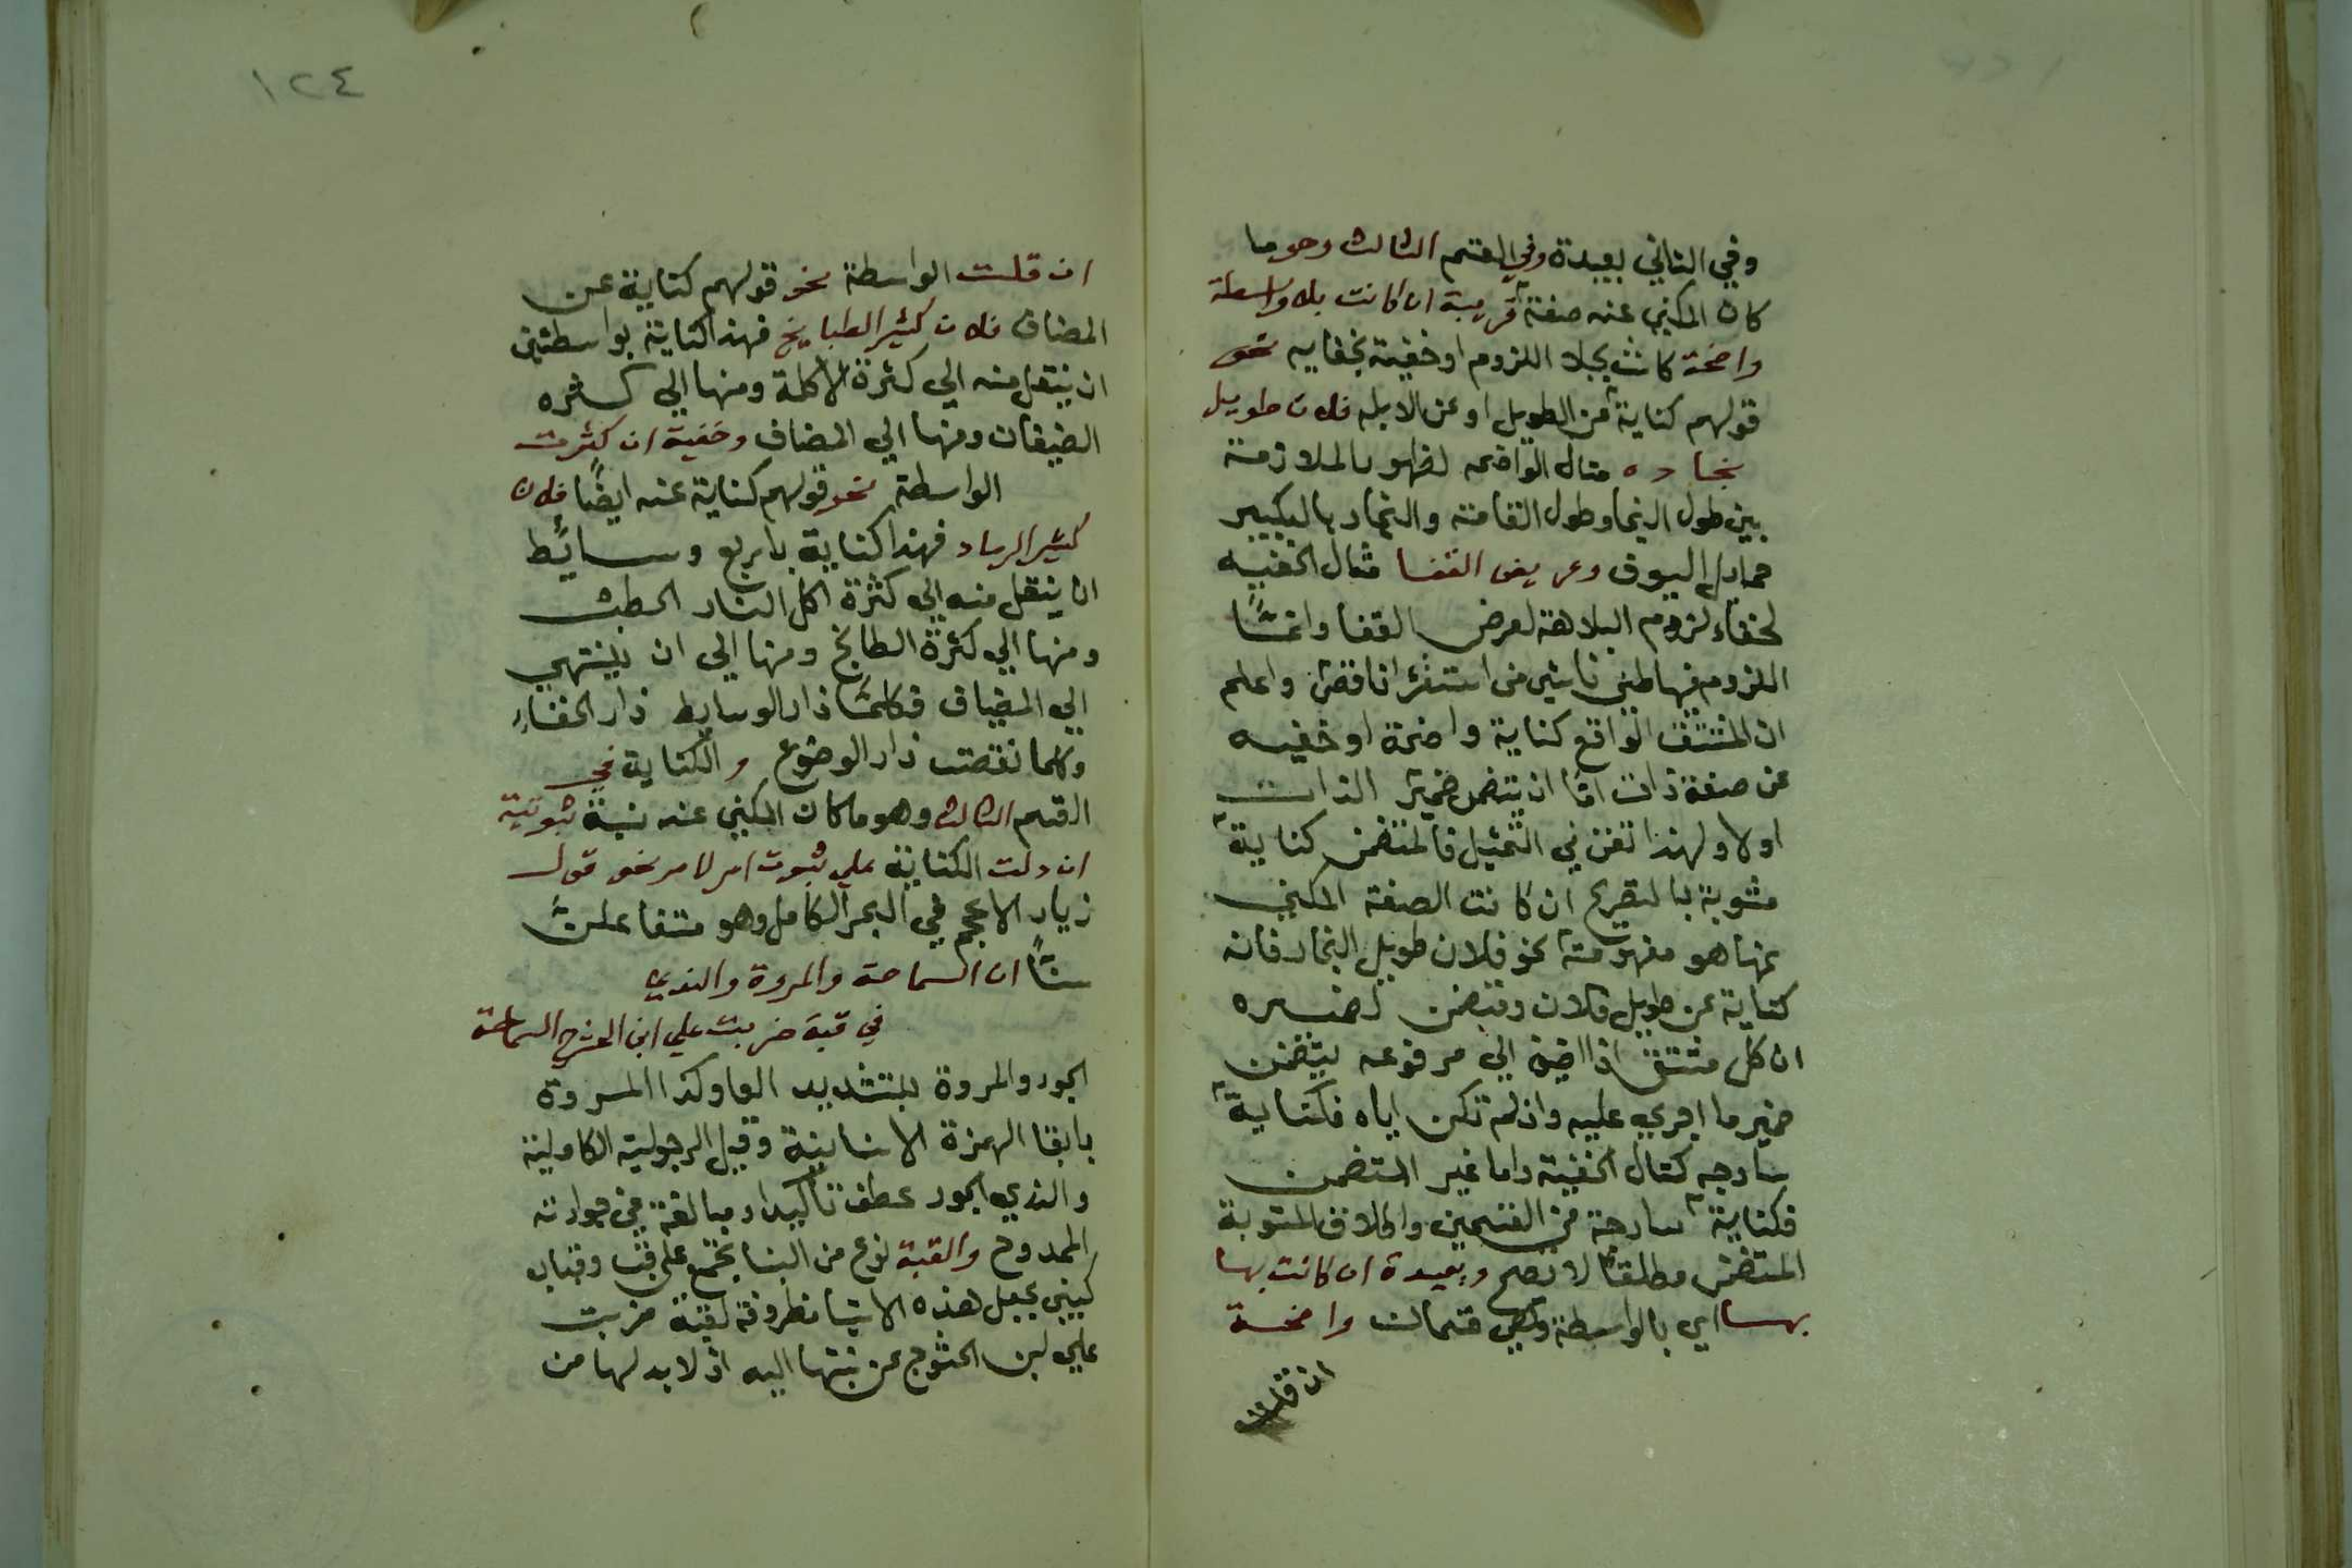 وفي الثاني بعيدة وفي القسم الثالث وهو ما
كان المكني عنه صفة قريبة ان كانت بلا واسطة
واضحة كانت بجلا اللزوم او خفية بخفايه نحو
قولهم كناية عن الطويل او عن الابله فلان طويل
نجاده مثال الواضحه لظهور الملازمة
بين طول النجا وطول القامة والنجاد بالبكيير
حمايل السيوف وعريض القفا مثال الخفيه
لخفاء لزوم البلاهة لعرض القفا وانما
اللزوم فيها ظني ناشي من استقرا ناقص واعلم
ان المشتق الواقع كناية واضحة او خفيه
عن صفة ذات اما ان يتضمن ضمير الذات
اولا ولهذا تفنن في التمثيل فالمتضمن كناية
مشوبة بالتصريح ان كانت الصفة المكني
عنها هو مفهومة نحو فلان طويل النجاد فانه
كناية عن طويل فلان وتتضمن لضميره
ان كل مشتق اذا اضيف الي مرفوعه يتضمن
ضمير ما اجري عليه واذ لم تكن اياه فكناية
ساذجه كمثال الخفية واما غير المتضمن
فكناية ساذجة من القسمين واطلاق المشوبة
المتضمن مطلقا لا يصح وبعيدة ان كانت بها
بهسا اي بالواسطة وهي قسمان واضحة
ان قلت
١٢٤
ان قلت الواسطة نحو قولهم كناية عن
المضاف فلان كثير الطبايخ فهذا كناية بواسطتين
ان ينتقل منه الي كثرة الاكلة ومنها الي كثره
الضيفان ومنها الي المضاف وخفية ان كثرت
الواسطة نحو قولهم كناية عنه ايضًا فلان
كثير الرماد فهذا كناية باربع وسائط
ان ينتقل منه الي كثرة اكل النار الحطب
ومنها الي كثرة الطابخ ومنها الي ان ينتهي
الي المضياف فكلما زاد الوسايط زاد الخفاء
وكلما نقصت زاد الوضوع والكناية في
القسم الثالث وهو ما كان المكني عنه نسبة ثبوتية
ان دلت الكناية علي ثبوت امر لامر نحو قول
زياد الاعجم في البحر الكامل وهو متفاعلن
ستًا ان السماحة والمروة والندي
في قبة ضربت علي ابن الحشرج السماحة
الجود والمروة بالتشديد الواو كذا المسروة
بابقا الهمزة الانسانية وقيل الرجولية الكاملية
والندي الجود عطف تاكيدا ومبالغة في جوادته
الممدوح والقبة نوع من البنا تجمع علي قبب وقباب
كنيي بجعل هذه الاشيا مظروفة لقبة ضربت
علي ابن الحشرج عن نسبتها اليه اذ لا بد لها من